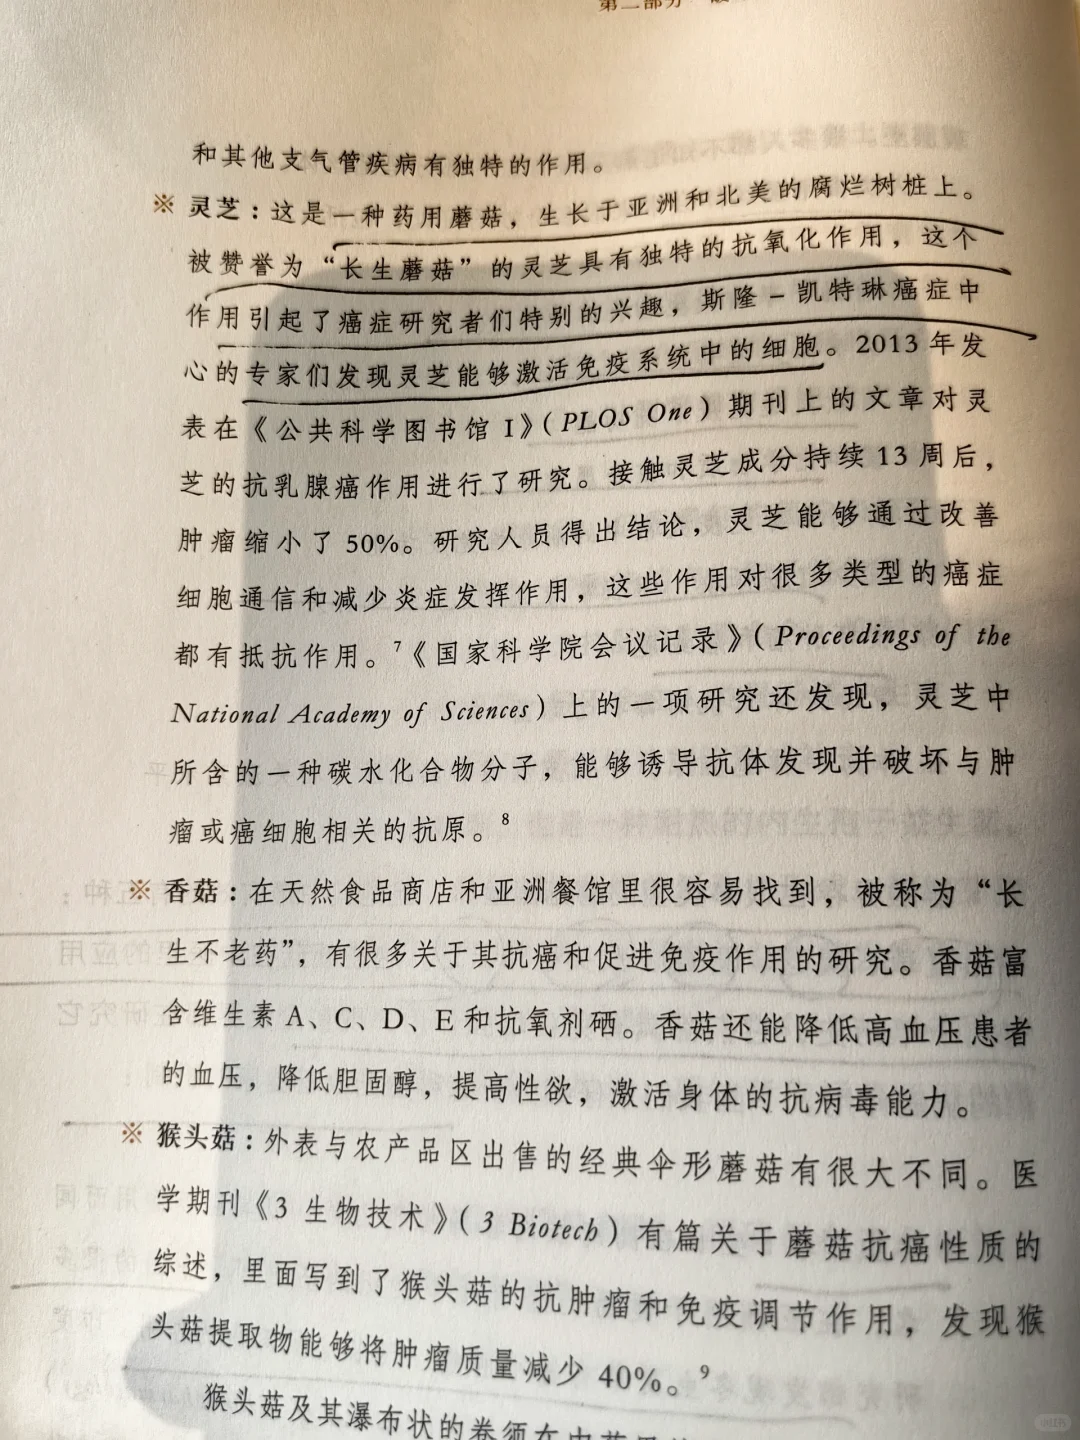 第二部分
和其他支气管疾病有独特的作用。
※ 灵芝：这是一种药用蘑菇，生长于亚洲和北美的腐烂树桩上。
被赞誉为“长生蘑菇”的灵芝具有独特的抗氧化作用，这个
作用引起了癌症研究者们特别的兴趣，斯隆－凯特琳癌症中
心的专家们发现灵芝能够激活免疫系统中的细胞。2013 年发
表在《公共科学图书馆 I》（PLOS One）期刊上的文章对灵
芝的抗乳腺癌作用进行了研究。接触灵芝成分持续 13 周后，
肿瘤缩小了 50%。研究人员得出结论，灵芝能够通过改善
细胞通信和减少炎症发挥作用，这些作用对很多类型的癌症
都有抵抗作用。7《国家科学院会议记录》（Proceedings of the
National Academy of Sciences）上的一项研究还发现，灵芝中
所含的一种碳水化合物分子，能够诱导抗体发现并破坏与肿
瘤或癌细胞相关的抗原。8
※ 香菇：在天然食品商店和亚洲餐馆里很容易找到，被称为“长
生不老药”，有很多关于其抗癌和促进免疫作用的研究。香菇富
含维生素 A、C、D、E 和抗氧剂硒。香菇还能降低高血压患者
的血压，降低胆固醇，提高性欲，激活身体的抗病毒能力。
※ 猴头菇：外表与农产品区出售的经典伞形蘑菇有很大不同。医
学期刊《3 生物技术》（3 Biotech）有篇关于蘑菇抗癌性质的
综述，里面写到了猴头菇的抗肿瘤和免疫调节作用，发现猴
头菇提取物能够将肿瘤质量减少 40%。9
猴头菇及其瀑布状的卷须在中药里